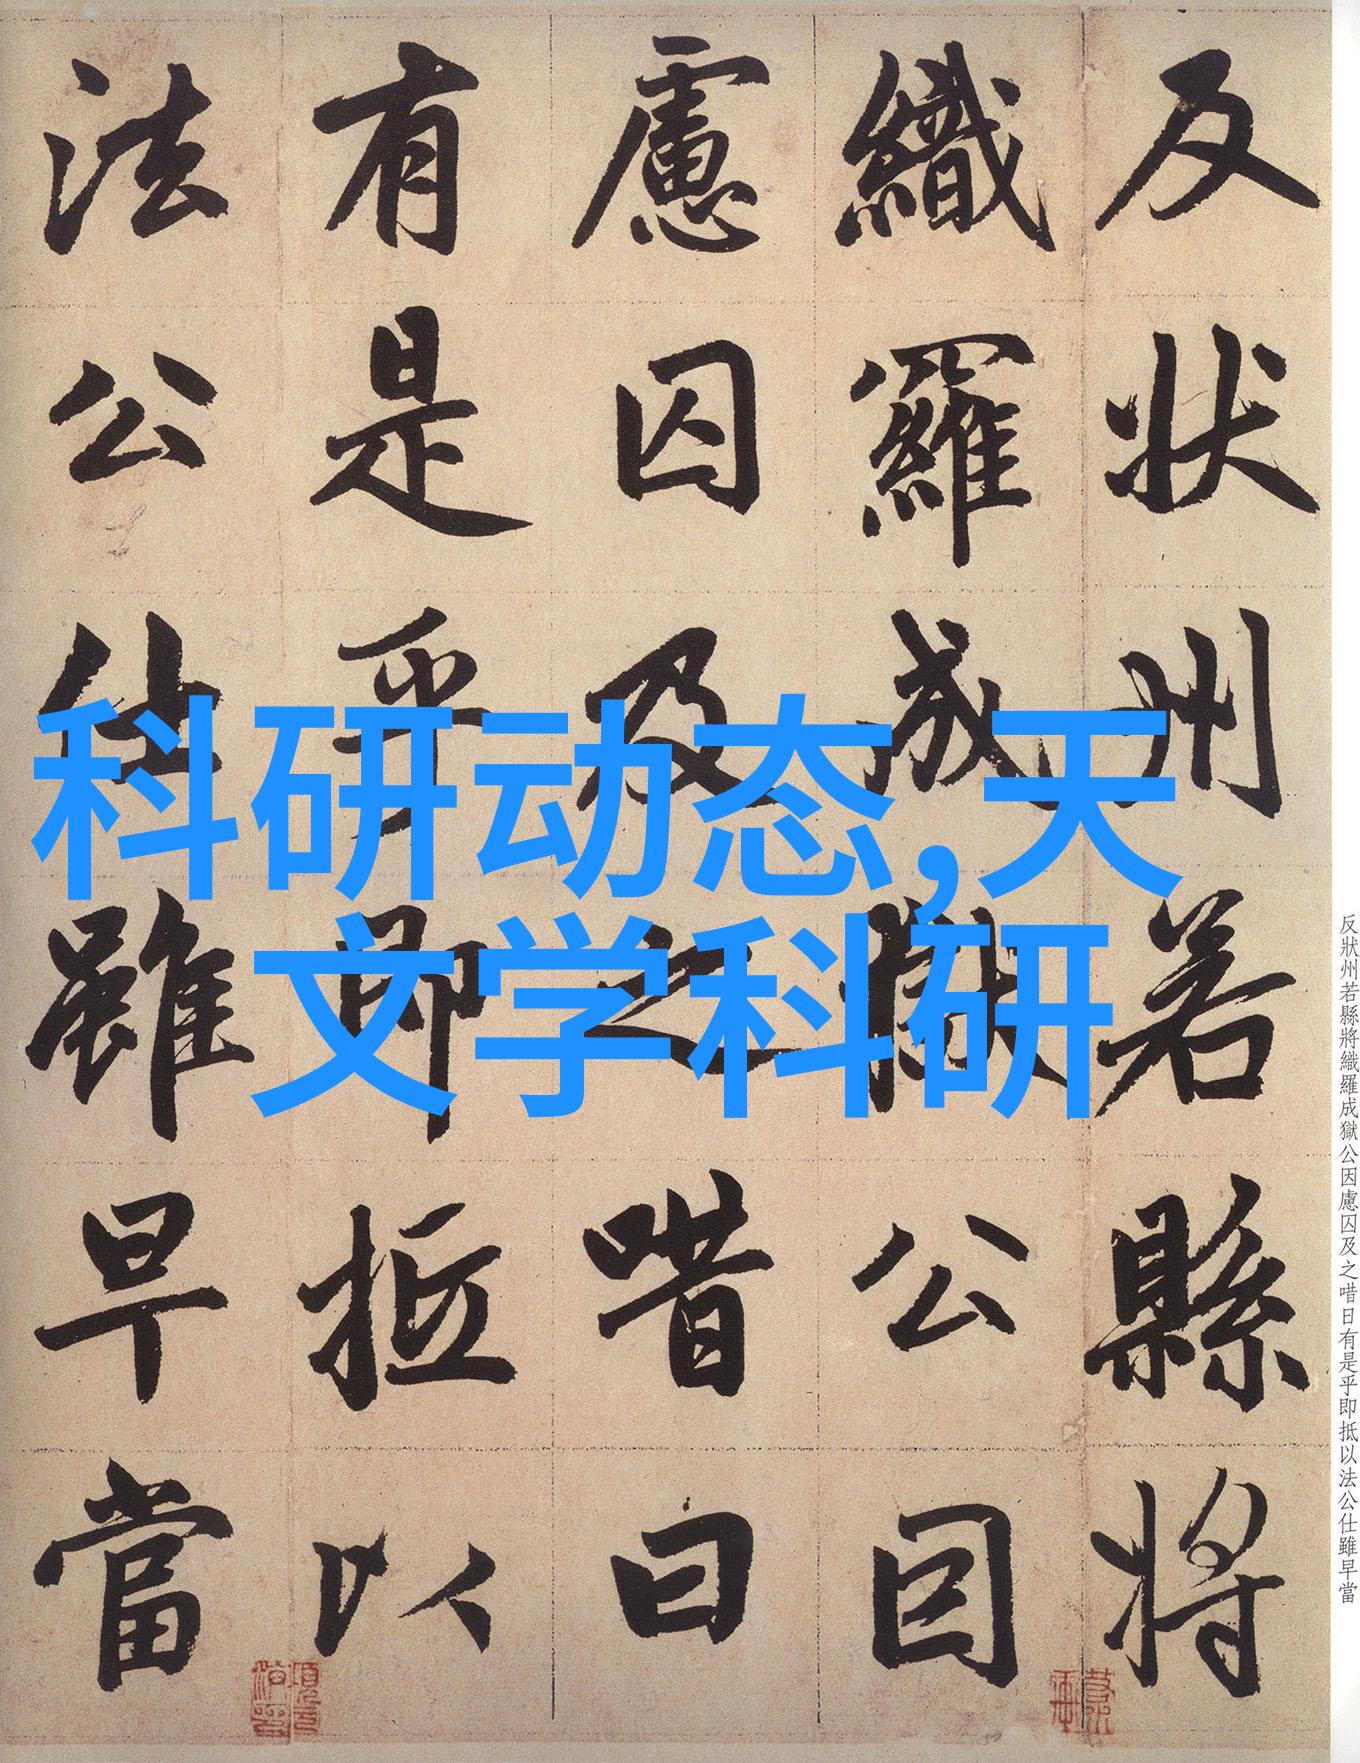 反状州若縣將
織羅成獄公因
慮囚及之唶曰
有是乎即抵以
法公仕雖早當
科研动态,天
文学科研
反狀州若縣將織羅成獄公因慮囚及之唶日有是乎即抵以法公仕雖早當